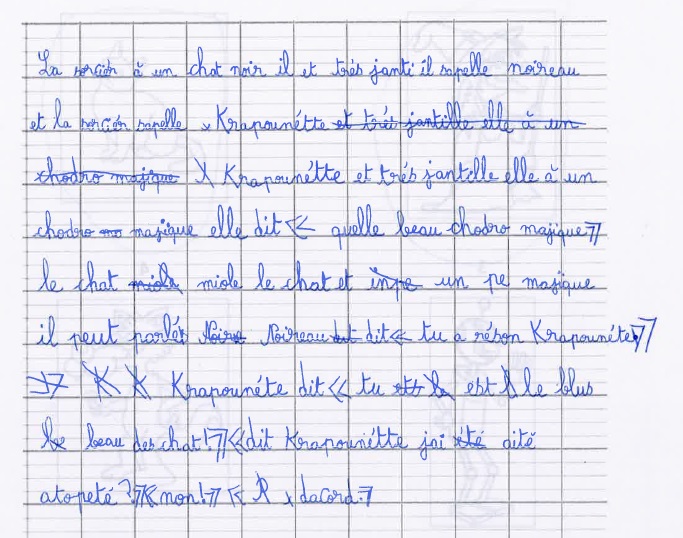 La sorcièr à un chat noir il et trés janti il sapelle noireau
et la sorcièr sapelle x Krapounétte et trés jantille elle à un
chodro majique X Krapounétte et trés jantille elle à un
chodro majique elle dit << quelle beau chodro majique >>
le chat miole miole le chat et inpe un pe majique
il peut parlér Noire Noireau dit dit << tu a réson Krapounéte >>
>> K K Krapounéte dit << tu est le blus
le beau des chat! >> << dit Krapounétte jai été aité
atopeté? >> << non! >> << R x dacord. >>